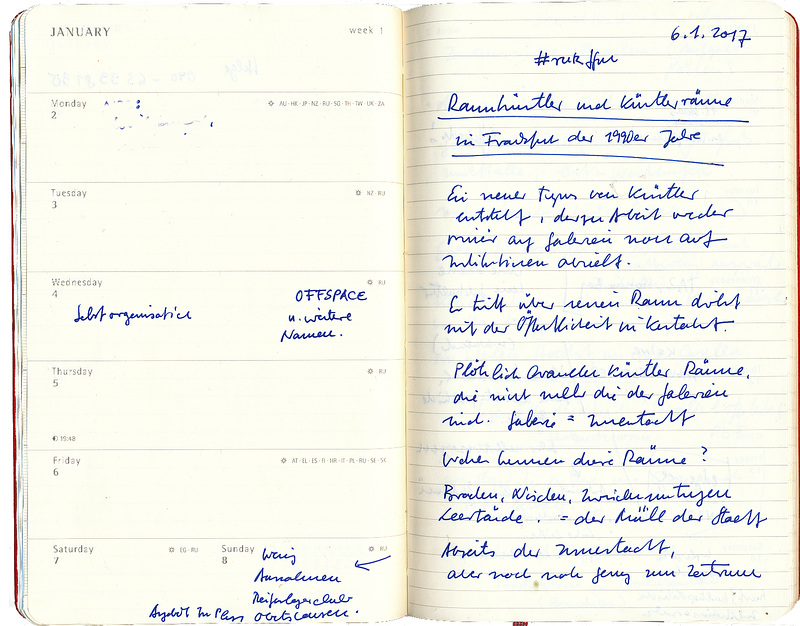 JANUARY
week 1
Monday
2
AU·HK·JP·NZ·RU·SG·TH·TW·UK·ZA
Tuesday
3
NZ·RU
Wednesday
4
RU
Selbstorganisation
OFFSPACE
u. weitere
Namen.
Thursday
5
RU
19:48
Friday
6
Saturday
7
EG·RU
Sunday
8
RU
wenig
Ausnahmen
6.1.2017
Raumkünstler und Künstlerräume
in Frankfurt der 1990er Jahre
Ein neuer Typus von Künstler
entsteht, dessen Arbeit weder
auf Galerien noch auf
Institutionen abzielt.
Er tritt über seinen Raum direkt
mit der Öffentlichkeit in Kontakt.
Plötzlich Künstler Räume,
die nicht mehr die der Galerien
sind. Galerie = Innenstadt
Woher kommen diese Räume?
Brachen, Nischen, Zwischennutzungen
Leerstände. = der Müll der Stadt
Abseits der Innenstadt,
aber noch nah genug am Zentrum